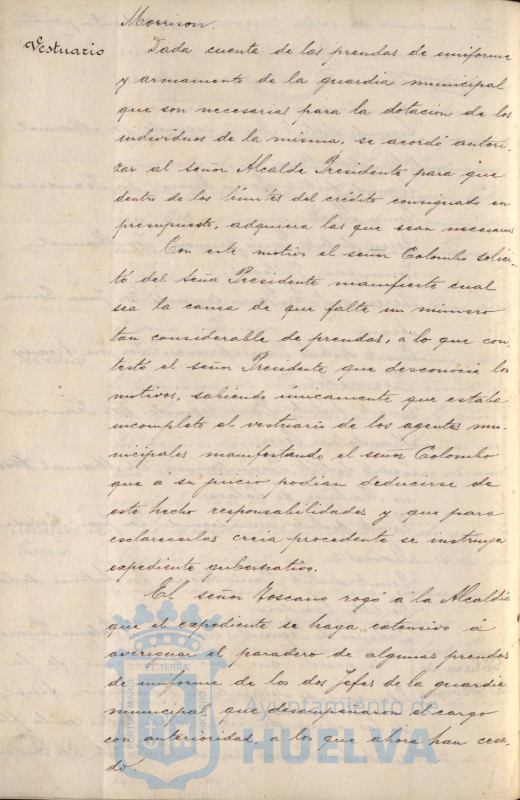 Morrison.
Vestuario
Dada cuenta de las prendas de uniforme
y armamento de la guardia municipal
que son necesarias para la dotacion de los
individuos de la misma, se acordó autori-
zar al señor Alcalde Presidente para que
dentro de los límites del crédito consignado en
presupuesto, adquiera las que sean necesarias
Con este motivo el señor Colombo solici-
tó del señor Presidente manifieste cual
sea la causa de que falte un número
tan considerable de prendas, á lo que con-
testó el señor Presidente que desconocia los
motivos, sabiendo únicamente que estaba
incompleto el vestuario de los agentes mu-
nicipales manifestando el señor Colombo
que á su juicio podian deducirse de
este hecho responsabilidades y que para
esclarecerlas creia procedente se instruya
expediente gubernativo.
El señor Toscano rogó á la Alcaldia
que el expediente se haga extensivo á
averiguar el paradero de algunas prendas
de uniforme de los dos Jefes de la guardia
municipal que desempeñaron el cargo
con anterioridad, á los que ahora han cesa-
do.
ET TERRÆ
CUSTODIA
Ayuntamiento de
HUELVA